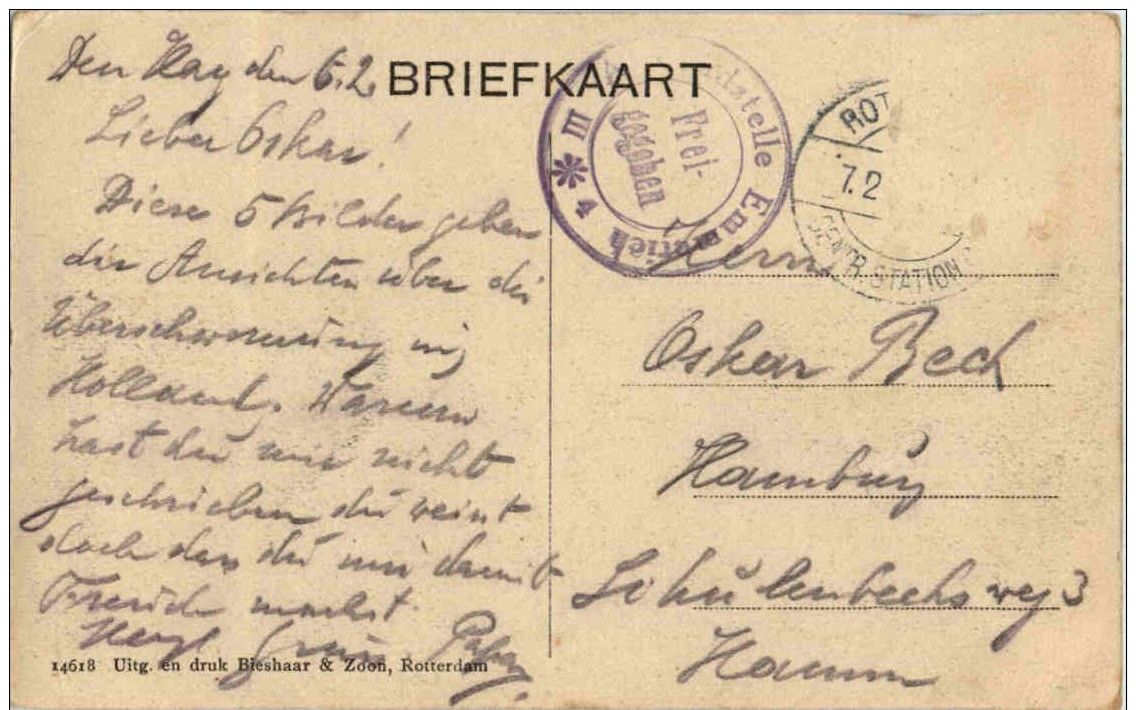 BRIEFKAART
Den Haag den 6.2.
Lieber Oskar!
Diese 5 Bilder geben
die Ansichten über die
Überschwemmung in
Holland. Warum
hast du mir nicht
geschrieben du weist
doch das du mir damit
Freude machst.
Herzl Grüsse Papa
14618 Uitg. en druk Bieshaar & Zoon, Rotterdam
stelle Emmerich
Frei-
gegeben
III
4
ROT
7.2
CENTR. STATION
Herrn
Oskar Bech
Hamburg
Schulenbecksweg 3
Hamm